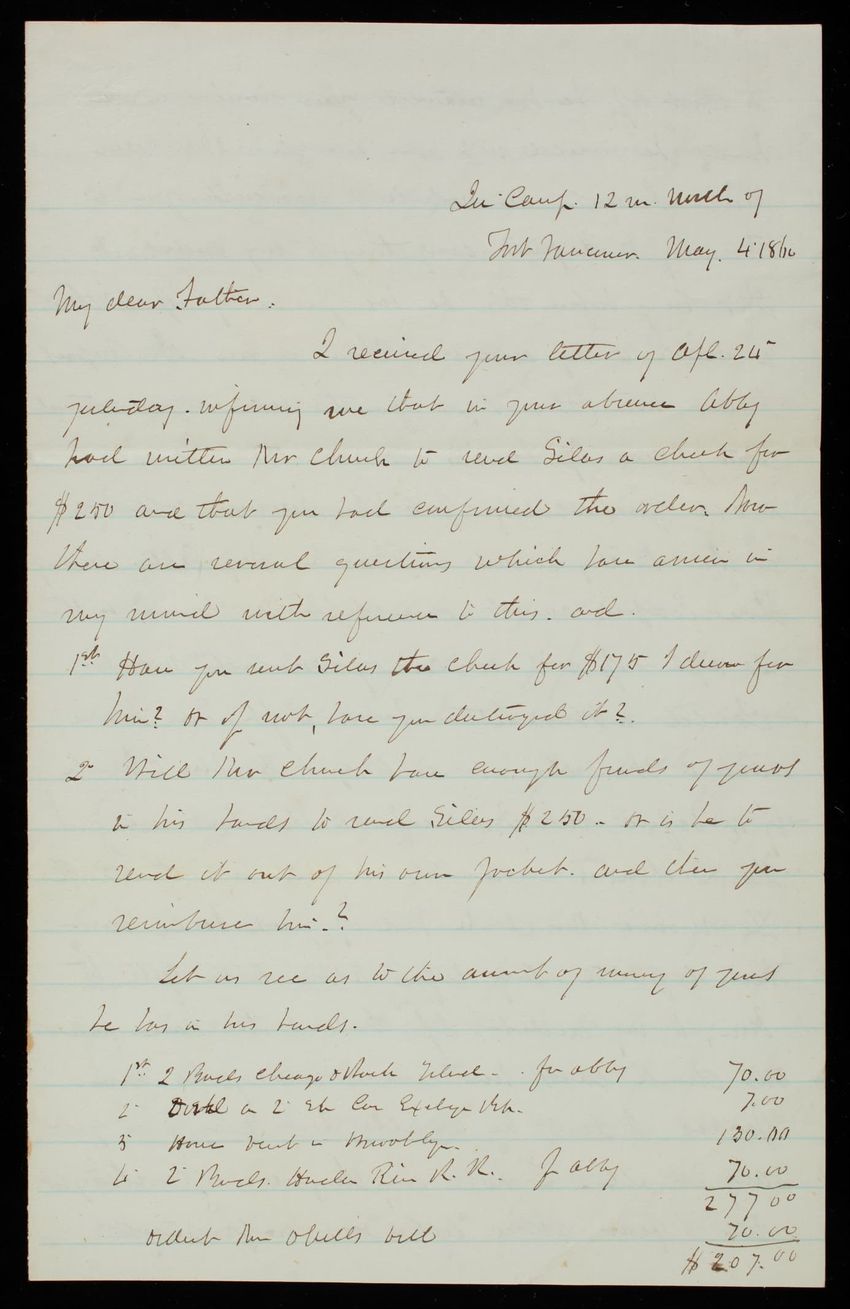 In Camp. 12 m. North of
Fort Vancouver. May. 4 1860
My dear Father.
I received your letter of Apl. 24
yesterday. informing me that in your absence Abby
had written Mr Church to send Silas a check for
$250 and that you had confirmed the order. Now
there are several questions which have arisen in
my mind with reference to this. and.
1st Have you sent Silas the check for $175 I drew for
him? or if not, have you destroyed it?
2d Will Mr Church have enough funds of yours
in his hands to send Silas $250 - or is he to
send it out of his own pocket. and then you
reimburse him.?
Let us see as to the amount of money of yours
he has in his hands.
1st 2 Bonds Chicago & Rock Island - for Abby 70.00
2 on 2 Sh Corn Exchge Bk. 7.00
3 House rent in Brooklyn. 130.00
4 2 Bonds. Hudson River R. R. f Abby 70.00
277 00
deduct Mr bill 70.00
$207.00